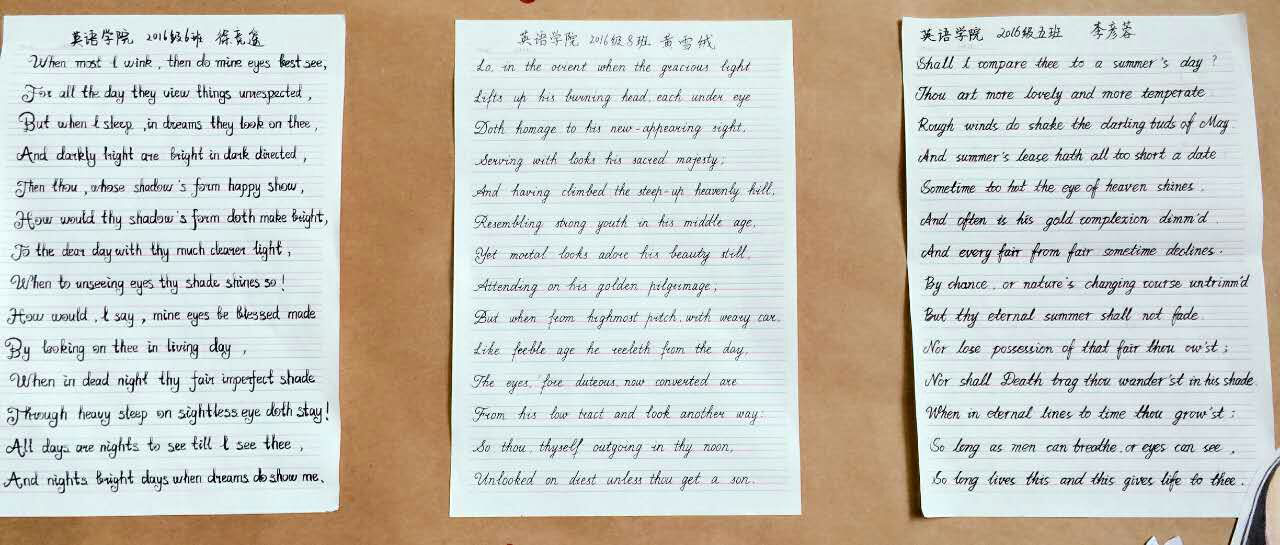 英语学院 2016级6班 徐克逸
When most I wink, then do mine eyes best see,
For all the day they view things unrespected,
But when I sleep, in dreams they look on thee,
And darkly bright are bright in dark directed,
Then thou, whose shadow's form happy show,
How would thy shadow's form doth make bright,
To the dear day with thy much clearer light,
When to unseeing eyes thy shade shines so!
How would, I say, mine eyes be blessed made
By looking on thee in living day,
When in dead night thy fair imperfect shade
Through heavy sleep on sightless eye doth stay!
All days are nights to see till I see thee,
And nights bright days when dreams do show me.
英语学院 2016级8班 黄雪绒
Lo, in the orient when the gracious light
Lifts up his burning head, each under eye
Doth homage to his new-appearing sight,
Serving with looks his sacred majesty;
And having climbed the steep-up heavenly hill,
Resembling strong youth in his middle age,
Yet mortal looks adore his beauty still,
Attending on his golden pilgrimage;
But when from highmost pitch, with weary car,
Like feeble age he reeleth from the day,
The eyes, 'fore duteous, now converted are
From his low tract and look another way:
So thou, thyself outgoing in thy noon,
Unlooked on diest unless thou get a son.
英语学院 2016级五班 李彦蓉
Shall I compare thee to a summer's day?
Thou art more lovely and more temperate.
Rough winds do shake the darling buds of May.
And summer's lease hath all too short a date
Sometime too hot the eye of heaven shines.
And often is his gold complexion dimm'd.
And every fair from fair sometime declines.
By chance, or nature's changing course untrimm'd
But thy eternal summer shall not fade.
Nor lose possession of that fair thou ow'st;
Nor shall Death brag thou wander'st in his shade.
When in eternal lines to time thou grow'st;
So long as men can breathe, or eyes can see,
So long lives this and this gives life to thee.